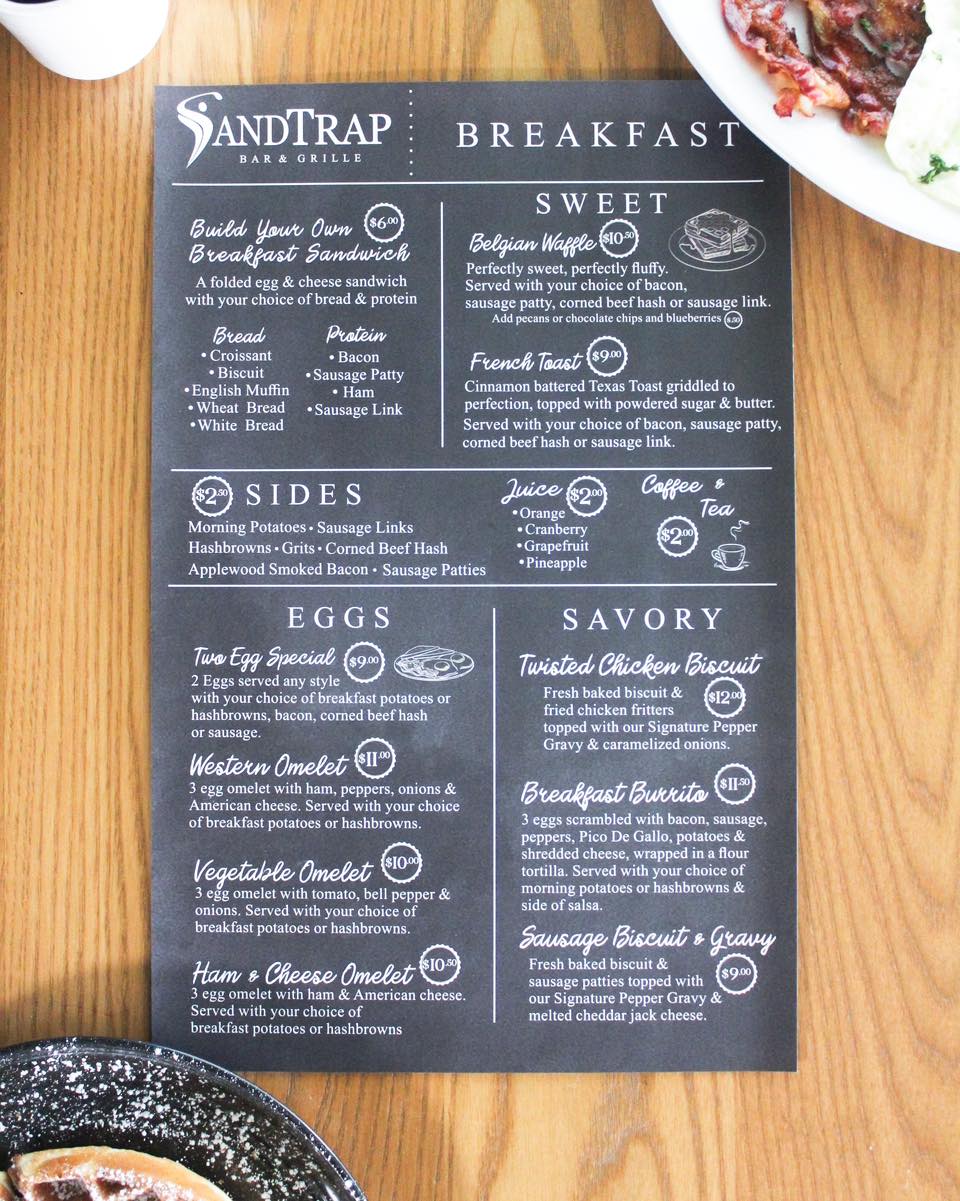 SANDTRAP
BAR & GRILLE
BREAKFAST
Build Your Own $6.00
Breakfast Sandwich
A folded egg & cheese sandwich
with your choice of bread & protein
Bread
• Croissant
• Biscuit
• English Muffin
• Wheat Bread
• White Bread
Protein
• Bacon
• Sausage Patty
• Ham
• Sausage Link
SWEET
Belgian Waffle $10.50
Perfectly sweet, perfectly fluffy.
Served with your choice of bacon,
sausage patty, corned beef hash or sausage link.
Add pecans or chocolate chips and blueberries $.50
French Toast $9.00
Cinnamon battered Texas Toast griddled to
perfection, topped with powdered sugar & butter.
Served with your choice of bacon, sausage patty,
corned beef hash or sausage link.
$2.50 SIDES
Morning Potatoes • Sausage Links
Hashbrowns • Grits • Corned Beef Hash
Applewood Smoked Bacon • Sausage Patties
Juice $2.00
• Orange
• Cranberry
• Grapefruit
• Pineapple
Coffee &
Tea
$2.00
EGGS
Two Egg Special $9.00
2 Eggs served any style
with your choice of breakfast potatoes or
hashbrowns, bacon, corned beef hash
or sausage.
Western Omelet $11.00
3 egg omelet with ham, peppers, onions &
American cheese. Served with your choice
of breakfast potatoes or hashbrowns.
Vegetable Omelet $10.00
3 egg omelet with tomato, bell pepper &
onions. Served with your choice of
breakfast potatoes or hashbrowns.
Ham & Cheese Omelet $10.50
3 egg omelet with ham & American cheese.
Served with your choice of
breakfast potatoes or hashbrowns
SAVORY
Twisted Chicken Biscuit
Fresh baked biscuit & $12.00
fried chicken fritters
topped with our Signature Pepper
Gravy & caramelized onions.
Breakfast Burrito $11.50
3 eggs scrambled with bacon, sausage,
peppers, Pico De Gallo, potatoes &
shredded cheese, wrapped in a flour
tortilla. Served with your choice of
morning potatoes or hashbrowns &
side of salsa.
Sausage Biscuit & Gravy
Fresh baked biscuit & $9.00
sausage patties topped with
our Signature Pepper Gravy &
melted cheddar jack cheese.